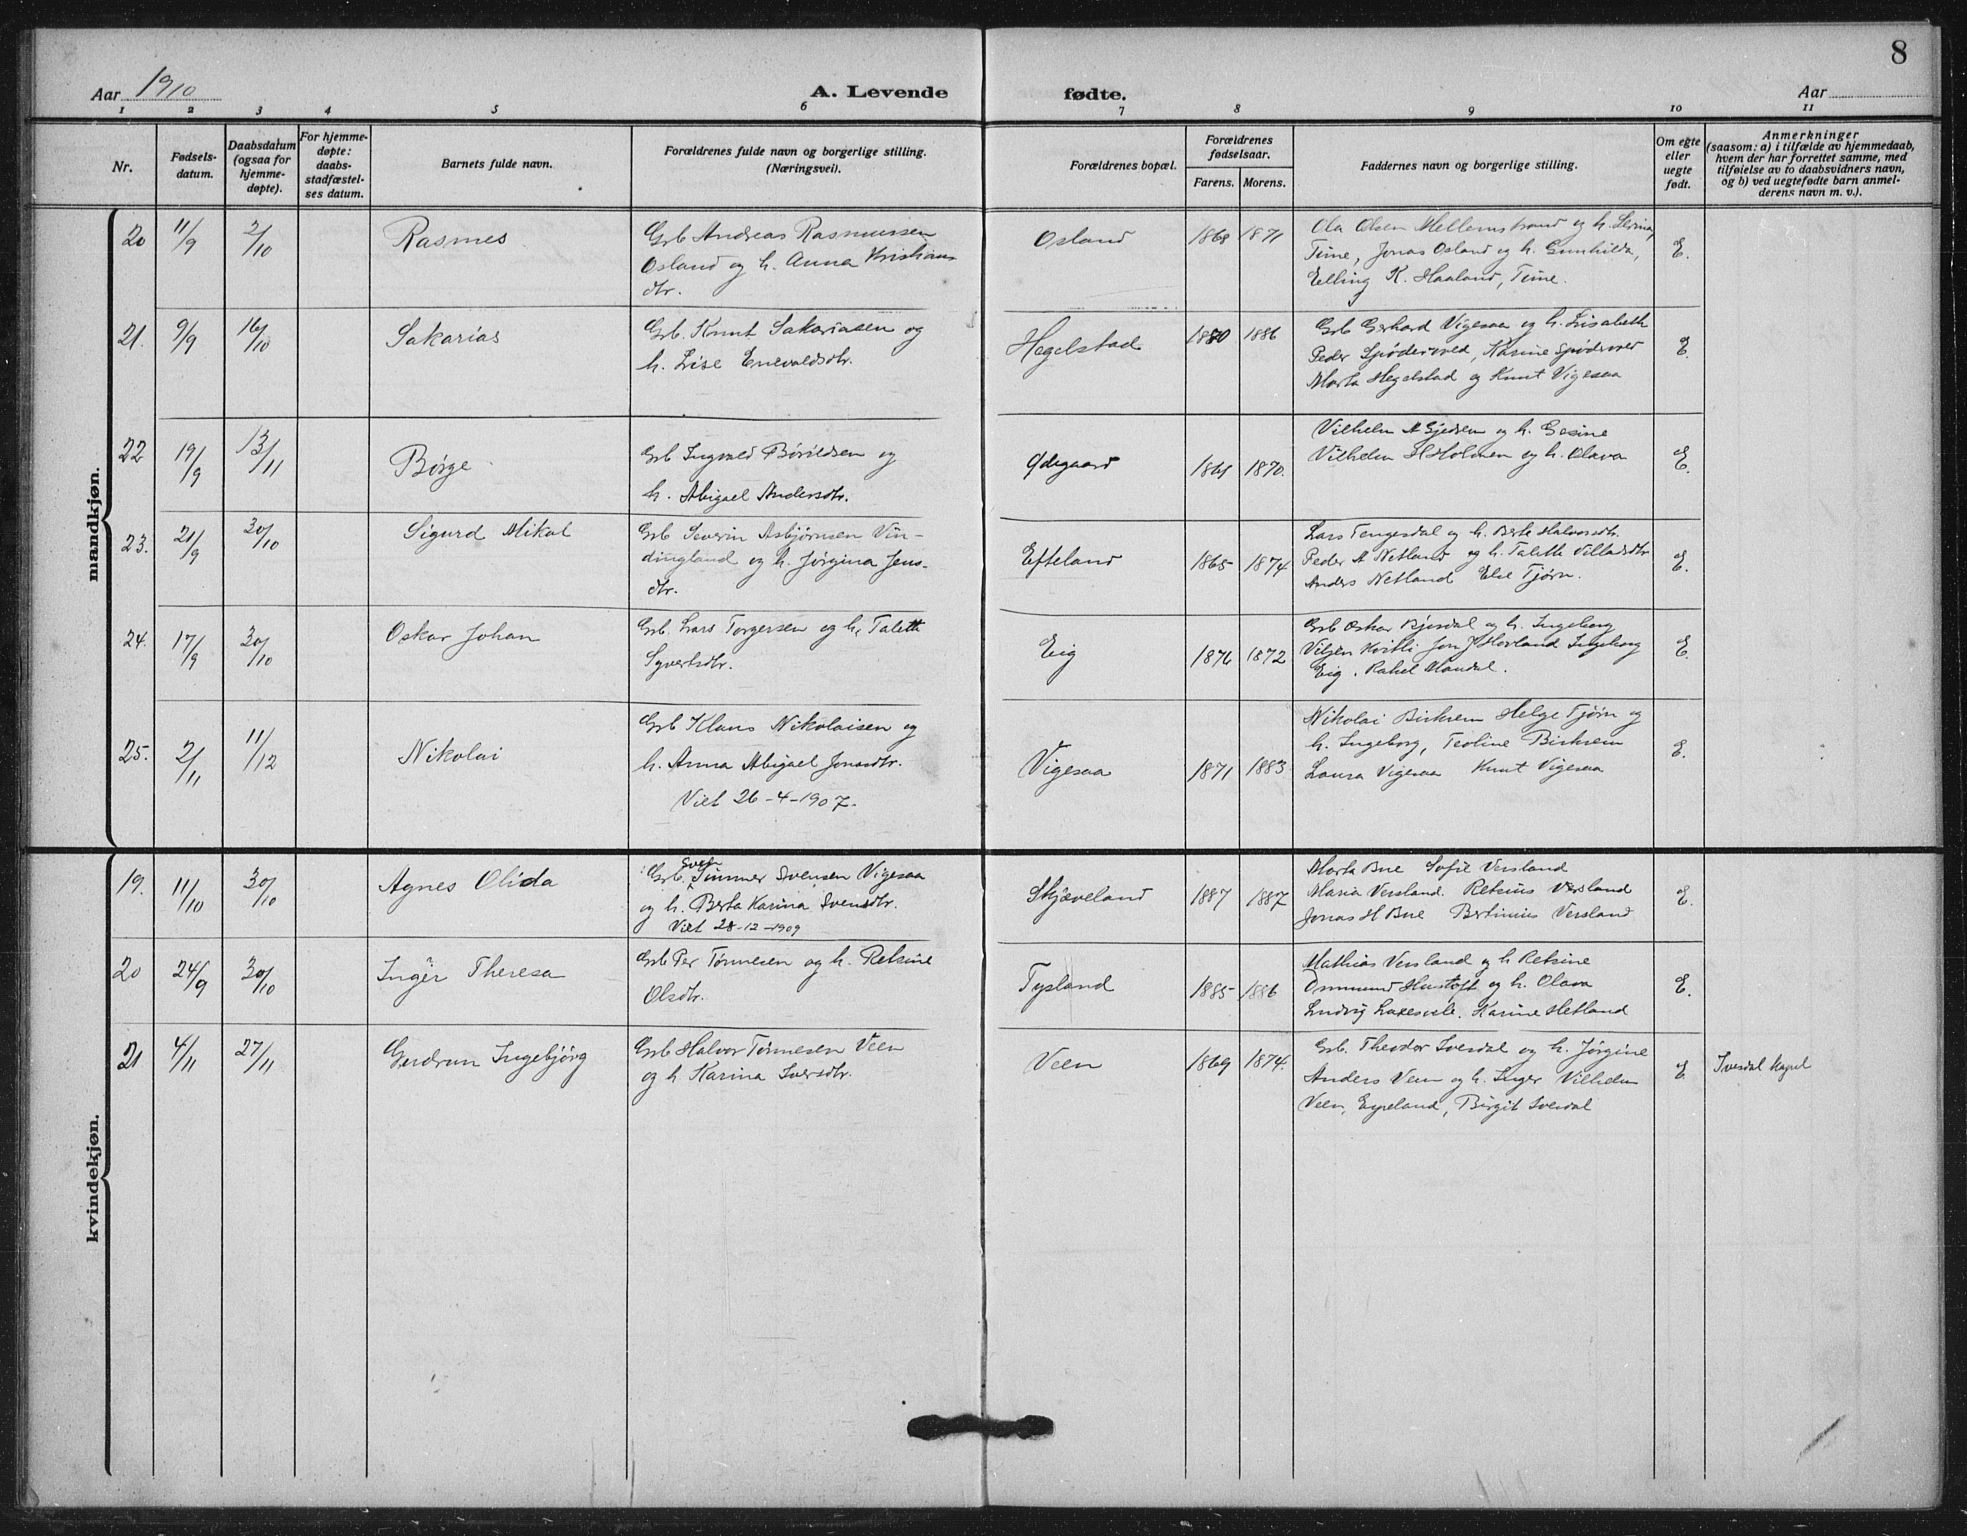 8
Aar 1910
A. Levende
fødte.
Aar
1 2 3 4 5 6 7 8 9 10 11
Nr.
Fødsels-
datum.
Daabsdatum
(ogsaa for
hjemme-
døpte).
For hjemme-
døpte:
daabs-
stadfæstel-
ses datum.
Barnets fulde navn.
Forældrenes fulde navn og borgerlige stilling.
(Næringsvei).
Forældrenes bopæl.
Forældrenes
fødselsaar.
Farens. Morens.
Faddernes navn og borgerlige stilling.
Om egte
eller
uegte
født.
Anmerkninger
(saasom: a) i tilfælde av hjemmedaab,
hvem der har forrettet samme, med
tilføielse av to daabsvidners navn,
og b) ved uegtefødte barn anmel-
derens navn m. v.).
mandkjøn.
20 11/9 2/10 Rasmes
Grb Andreas Rasmussen
Osland og h. Anna Kristians
dtr.
Osland 1868 1871
Ola Olsen Mellemstrand og h. Serina,
Time, Jonas Osland og h. Gunhilda,
Elling K. Haaland, Time.
E.
21. 9/9 16/10 Sakarias
Grb. Knut Sakariasen og
h. Lise Enevaldsdtr.
Hegelstad 1880 1886
Grb Gerhard Vigesaa og h. Lisabeth
Peder Spødervold, Karine Spødervold
Marta Hegelstad og Knut Vigesaa
E.
22 19/9 13/11 Børge
Grb Ingvald Børildsen og
h. Abigael Andersdtr.
Ødegaard 1869 1870.
Vilhelm A Gjedsen og h. Gesine
Vilhelm H Holmen og h. Olava
E.
23. 21/9 30/10 Sigurd Mikal
Grb Severin Asbjørnsen Vin-
dingland og h. Jørgina Jens-
dtr.
Efteland 1865 1874
Lars Tengesdal og h. Berte Halvorsdtr.
Peder A Netland og h. Taleth Villadsdtr
Anders Netland Else Tjørn.
E.
24. 17/9 30/10 Oskar Johan
Grb. Lars Torgersen og h. Taleth
Syvertsdtr.
Eig 1876 1872
Grb Oskar Bjerdal og h. Ingeborg
Jon J Hovland Ingeborg
Eig. Rakel Mandal.
E.
25. 2/11 11/12 Nikolai
Grb Klaus Nikolaisen og
h. Anna Abigael Jonasdtr.
Viet 26-4-1907.
Vigesaa 1871 1883
Nikolai Birkrem Helge Tjørn og
h. Ingeborg, Teoline Birkrem
Laura Vigesaa Knut Vigesaa
E.
kvindekjøn.
19. 11/10 30/10 Agnes Olida
Sven
Grb. Gunner Svensen Vigesaa
og h. Berta Karina Svendsdtr.
Viet 28-12-1909
Skjæveland 1887 1887
Marta Bue Sofie Versland
Maria Versland. Retsius Versland
Jonas H Bue Bertinius Versland
E.
20 24/9 30/10 Inger Theresa
Grb Per Tønnesen og h. Retsine
Olsdtr.
Tysland 1885 1886
Mathias Versland og h Retsine
Ommund Hustoft og h. Olava
Ludvig Laxesvele. Karine Hetland
E.
21 4/11 27/11 Gudrun Ingebjørg
Grb Halvor Tønnesen Veen
og h Karina Iversdtr.
Veen 1869 1874.
Grb. Theodor Ivesdal og h. Jørgine
Anders Veen og h. Inger Vilhelm
Veen, Eyeland, Birgit Ivesdal
E
Ivesdal Kapel